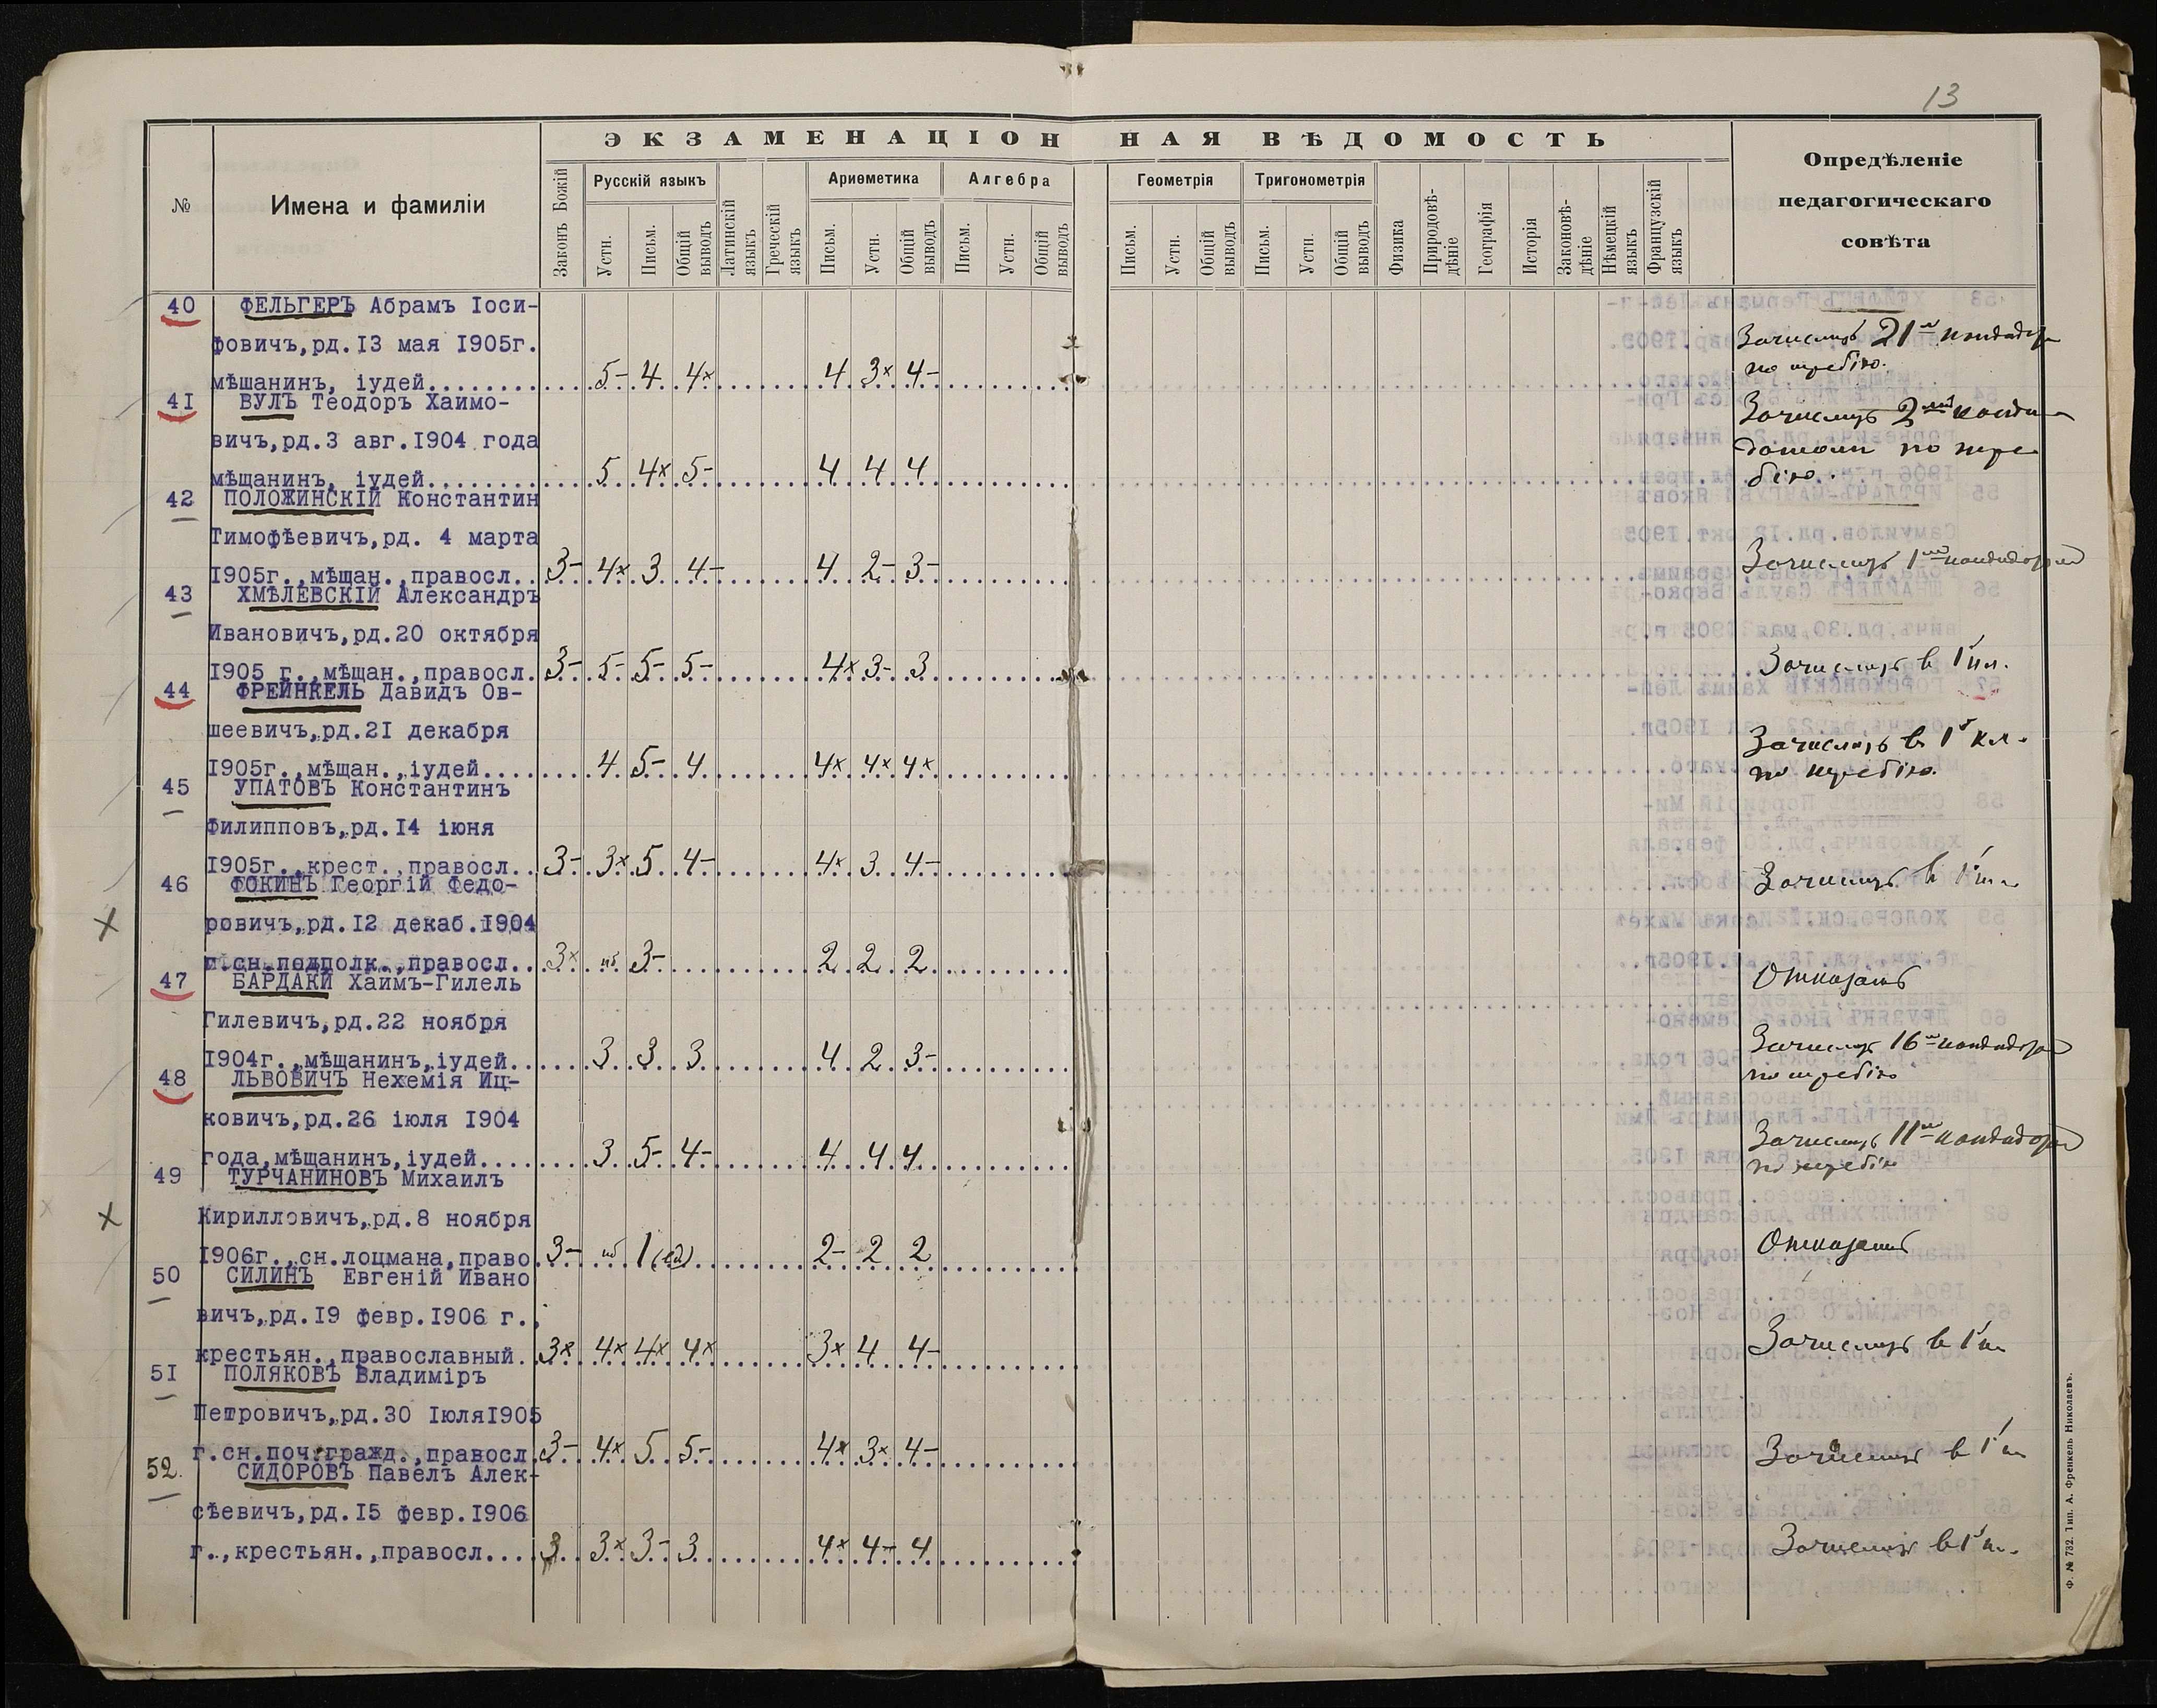 13
ЭКЗАМЕНАЦІОННАЯ ВѢДОМОСТЬ
№
Имена и фамиліи
Законъ Божій
Русскій языкъ
Устн.
Письм.
Общій выводъ
Латинскій языкъ
Греческій языкъ
Ариѳметика
Письм.
Устн.
Общій выводъ
Алгебра
Письм.
Устн.
Общій выводъ
Геометрія
Письм.
Устн.
Общій выводъ
Тригонометрія
Письм.
Устн.
Общій выводъ
Физика
Природовѣ-дѣніе
Географія
Исторія
Законовѣ-дѣніе
Нѣмецкій языкъ
Французскій языкъ
Опредѣленіе
педагогическаго
совѣта
40 ФЕЛЬГЕРЪ Абрамъ Іоси-
фовичъ,рд.13 мая 1905г.
мѣщанинъ, іудей 5- 4 4× 4 3× 4-
Зачислить 21м кандидатом
по жребію.
41 ВУЛЪ Теодоръ Хаимо-
вичъ,рд.3 авг.1904 года
мѣщанинъ, іудей 5 4× 5- 4 4 4
Зачислить 2ым канди-
датом по жре-
бію.
42 ПОЛОЖИНСКІЙ Константин
Тимофѣевичъ,рд. 4 марта
1905г.,мѣщан.,правосл. 3- 4× 3 4- 4 2- 3-
Зачислить 1ым кандидатом
43 ХМѢЛЕВСКІЙ Александръ
Ивановичъ,рд.20 октября
1905 г.,мѣщан.,правосл. 3- 5- 5- 5- 4× 3- 3
Зачислить в 1 кл.
44 ФРЕЙНКЕЛЬ Давидъ Ов-
шеевичъ,рд.21 декабря
1905г.,мѣщан.,іудей 4 5- 4 4× 4× 4×
Зачислить в 1й кл.
по жребію.
45 УПАТОВЪ Константинъ
Филипповъ,рд.14 іюня
1905г.,крест.,правосл. 3- 3× 5 4- 4× 3 4-
Зачислить в 1 кл.
46 ФОКИНЪ Георгій Федо-
ровичъ,рд.12 декаб.1904
г.сн.подполк.,правосл. 3× нб 3- 2 2 2
Отказать
47 БАРДАКИ Хаимъ-Гилель
Гилевичъ,рд.22 ноября
1904г.,мѣщанинъ,іудей 3 3 3 4 2 3-
Зачислить 16м кандидатом
по жребію
48 ЛЬВОВИЧЪ Нехемія Иц-
ковичъ,рд.26 іюля 1904
года,мѣщанинъ,іудей 3 5- 4- 4 4 4
Зачислить 11м кандидатом
по жребію
49 ТУРЧАНИНОВЪ Михаилъ
Кирилловичъ,рд.8 ноября
1906г.,сн.лоцмана,право 3- нб 1 (ед) 2- 2 2
Отказать
50 СИЛИНЪ Евгеній Ивано
вичъ,рд.19 февр.1906 г.,
крестьян.,православный. 3× 4× 4× 4× 3× 4 4-
Зачислить в 1 кл
51 ПОЛЯКОВЪ Владиміръ
Петровичъ,рд.30 Іюля1905
г.сн.поч.гражд.,правосл 3- 4× 5 5- 4× 3× 4-
Зачислить в 1 кл
52. СИДОРОВЪ Павелъ Алек-
сѣевичъ,рд.15 февр.1906
г.,крестьян.,правосл. 3 3× 3- 3 4× 4- 4
Зачислить в 1 кл.
Ф. № 732. Тип. А. Френкель Николаевъ.